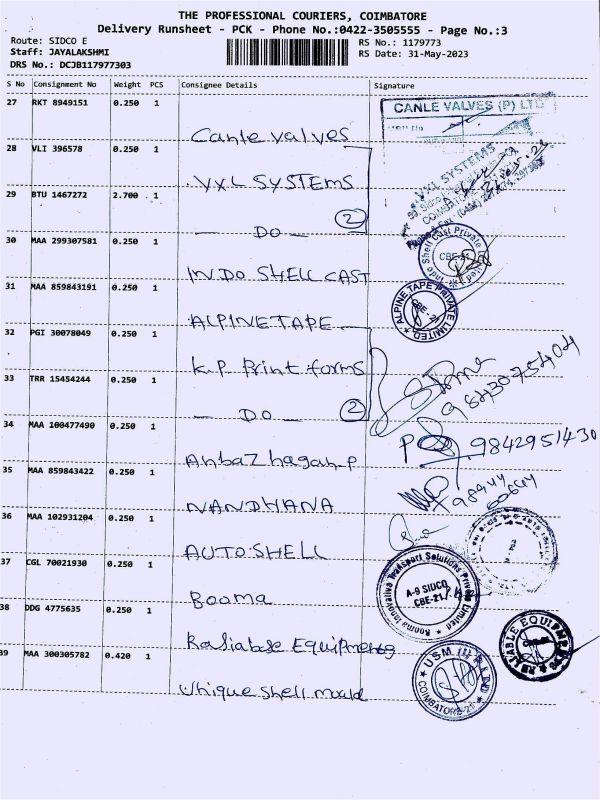 THE PROFESSIONAL COURIERS, COIMBATORE
Delivery Runsheet - PCK - Phone No.:0422-3505555 - Page No.:3
Route: SIDCO E RS No.: 1179773
Staff: JAYALAKSHMI RS Date: 31-May-2023
DRS No.: DCJB117977303
S No Consignment No Weight PCS Consignee Details Signature
27 RKT 8949151 0.250 1
CANLE VALVES (P) LTD
Canle valves
28 VLI 396578 0.250 1
VXL SYSTEMS
VXL SYSTEMS
29 BTU 1467272 2.700 1
2
— DO —
30 MAA 299307581 0.250 1
Indo Shell Cast Private Limited
CBE-21
INDO SHELL CAST
31 MAA 859843191 0.250 1
ALPINE TAPE PRIVATE LIMITED
ALPINE TAPE
32 PGI 30078049 0.250 1
K.P Print forms
33 TRR 15454244 0.250 1
9843075404
— DO — 2
34 MAA 100477490 0.250 1
9842951430
Anbazhagan P
35 MAA 859843422 0.250 1
NANDHANA
36 MAA 102931204 0.250 1
AUTOSHELL
37 CGL 70021930 0.250 1
Booma Innovative Transport Solutions Private Limited
A-9 SIDCO
CBE-21
Booma
38 DDG 4775635 0.250 1
RELIABLE EQUIPMENTS
Realiabse Equipments
39 MAA 300305782 0.420 1
USM
COIMBATORE-21
Unique shell mould